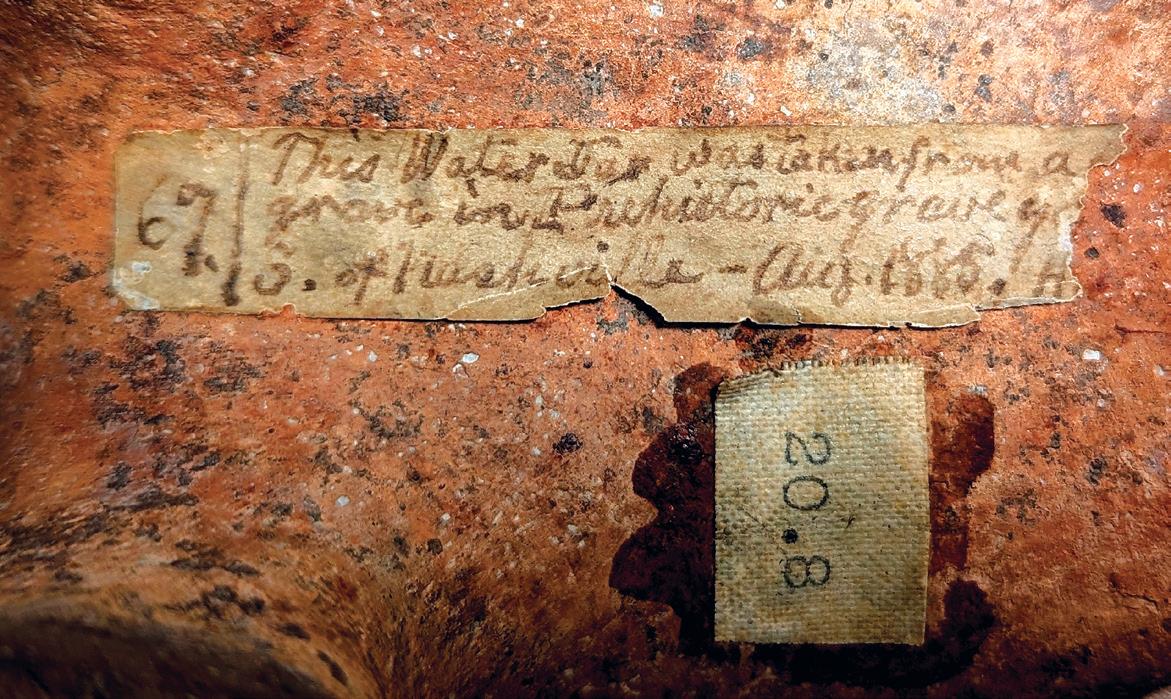 67.
This Water Jar was taken from a
grave in Prehistoric grave y
S. of Nashville - Aug. 1885. A
20.8